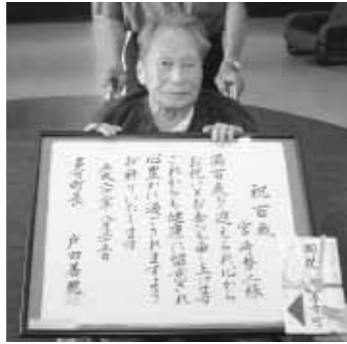 祝百歳
宮崎 様
満百歳を迎えられ心から
お祝いとお喜び申し上げます
これからも健康に留意され
心豊かに過ごされますよう
お祈りいたします
平成二十 年八月 日
町長 戸田善規
御祝